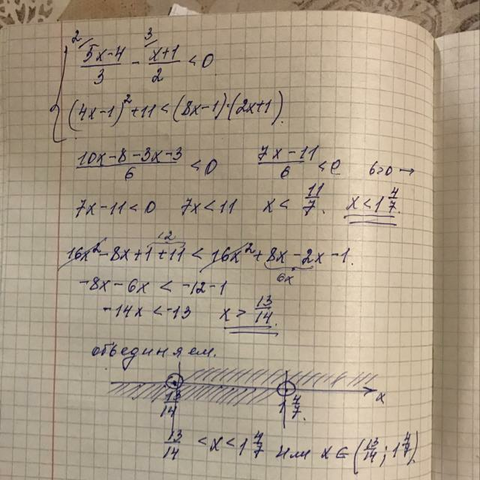 { ²/ (5x-4)/3 - ³/ (x+1)/2 < 0
(4x-1)² + 11 < (8x-1)·(2x+1).
(10x-8-3x-3)/6 < 0   (7x-11)/6 < 0   6>0 →
7x-11<0   7x<11   x< 11/7.   x<1 4/7.
12
16x² - 8x + 1 + 11 < 16x² + 8x - 2x - 1.
6x
-8x-6x < -12-1
-14x < -13   x > 13/14.
объединяем.
13/14   1 4/7.   x
13/14 < x < 1 4/7 или x ∈ (13/14; 1 4/7)